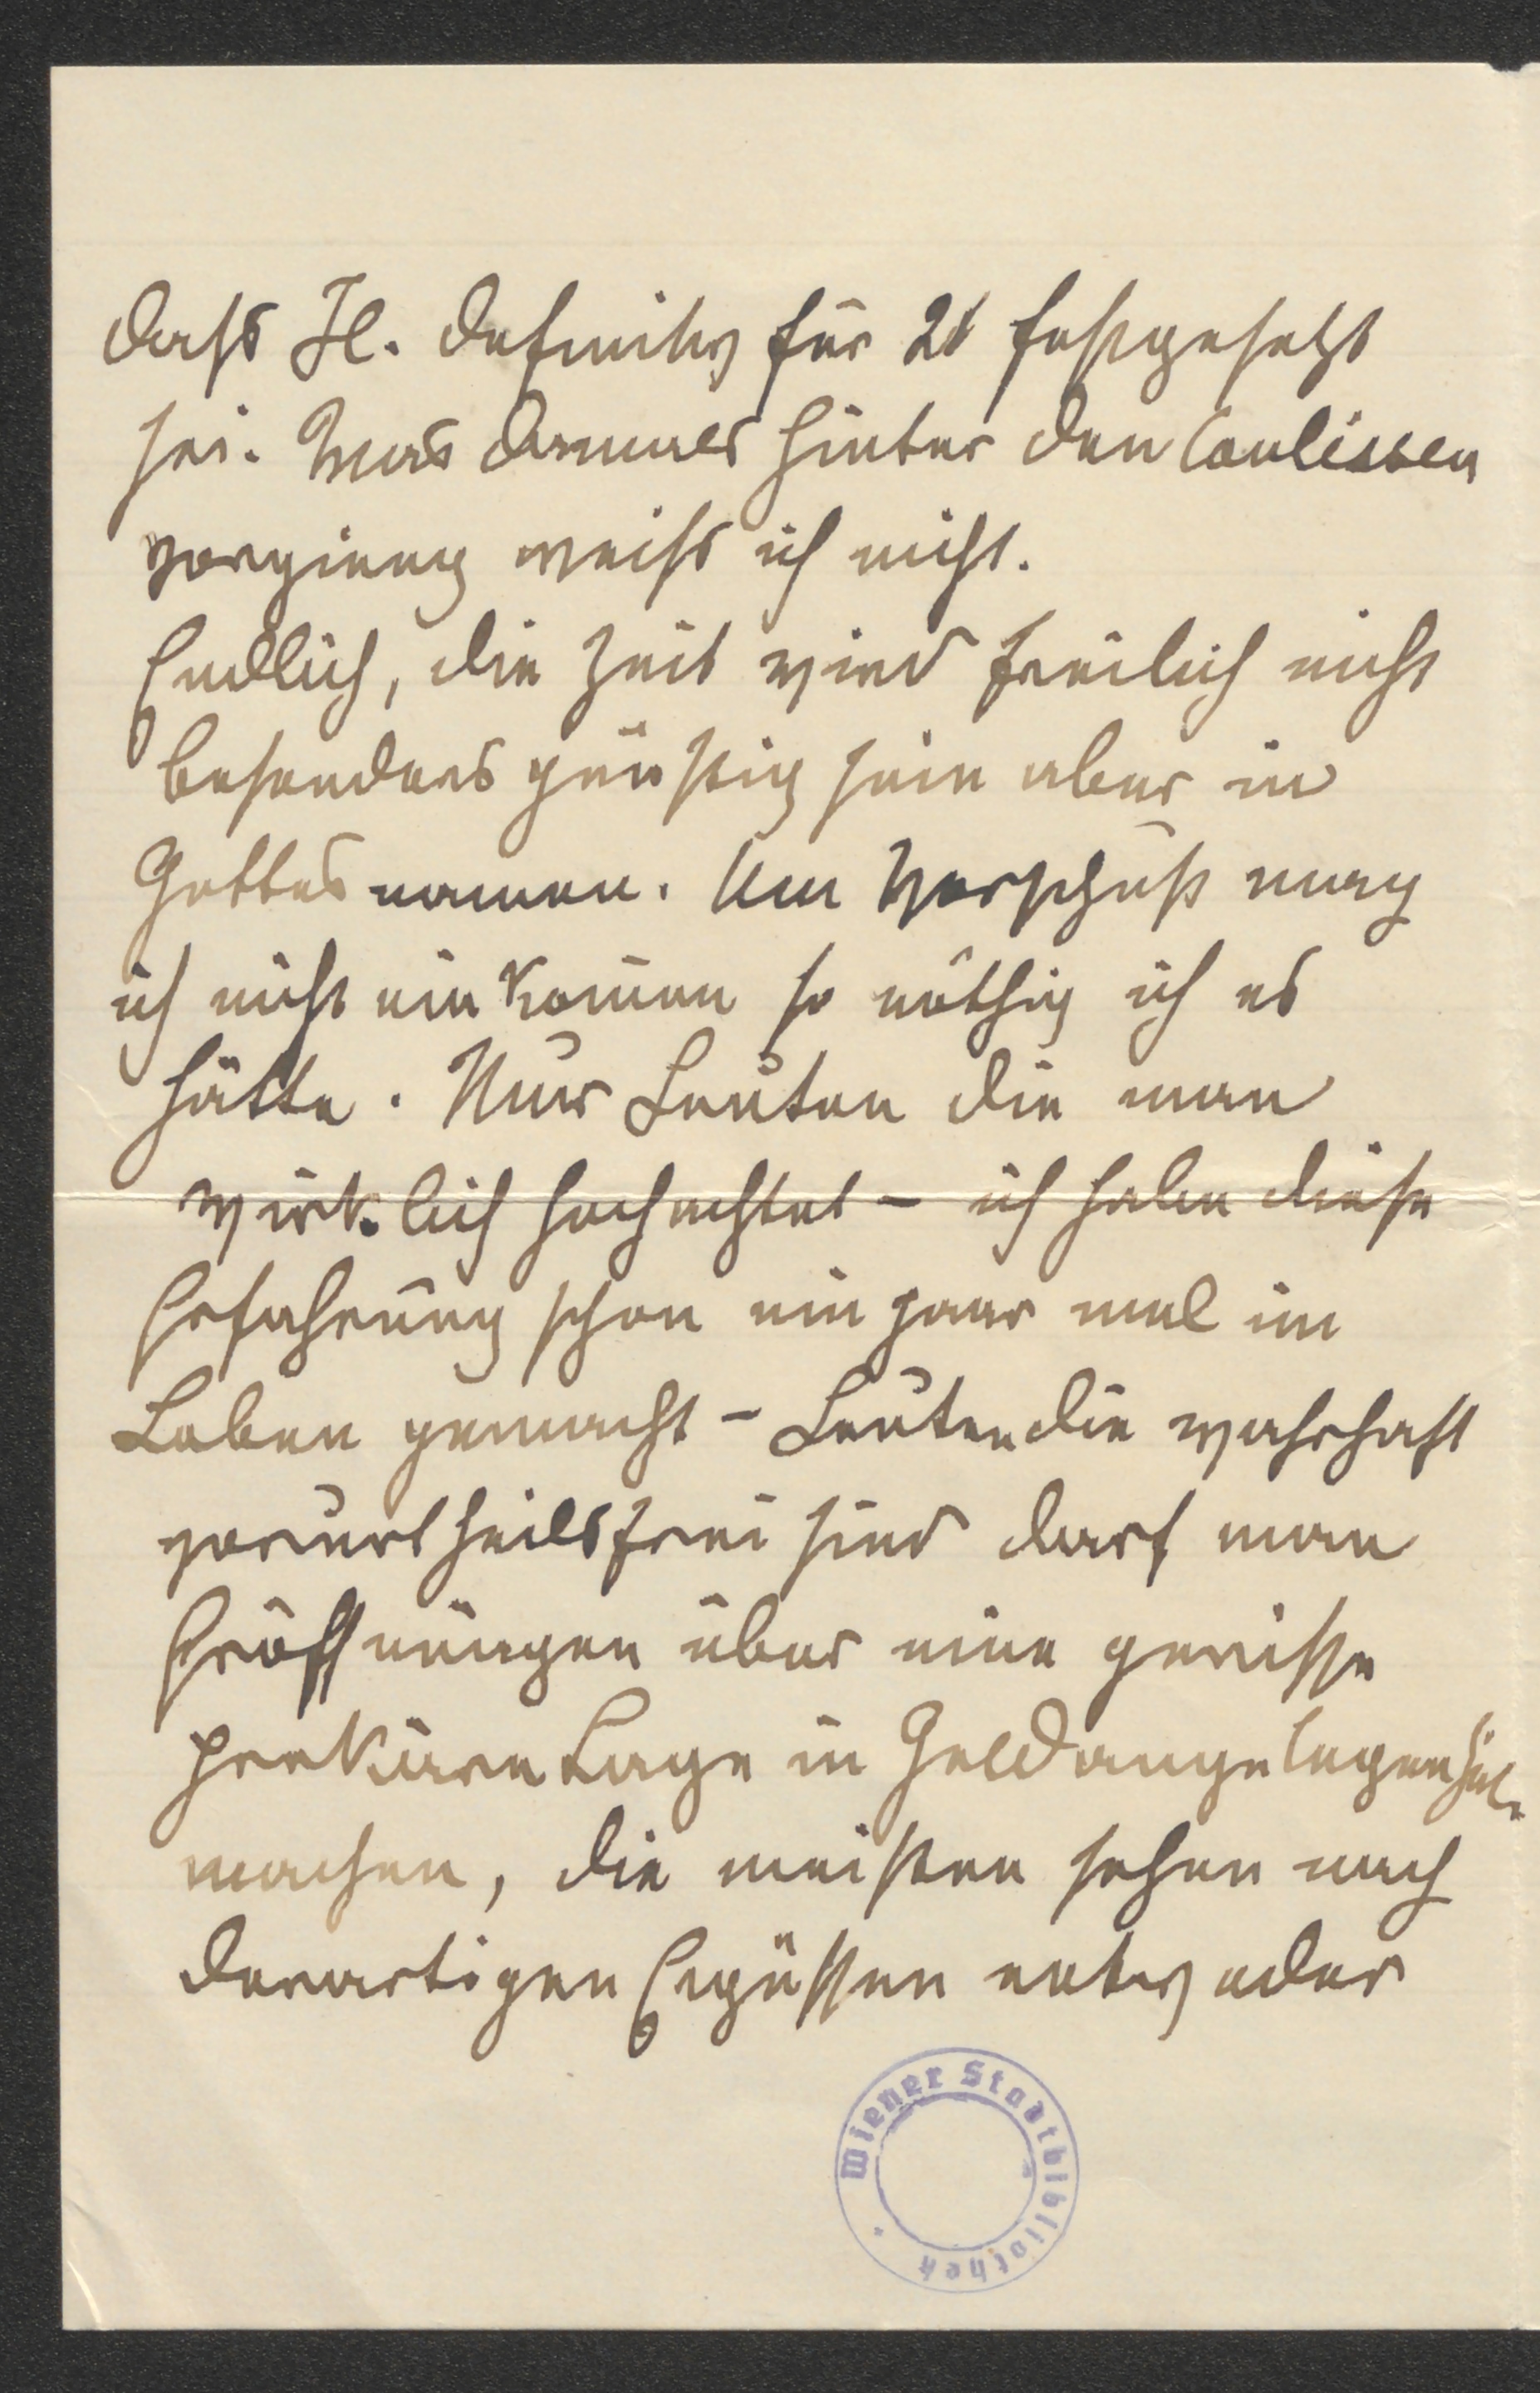 dass Il. definitiv für 21 festgesetzt
sei. Was damals hinter den Coulissen
vorgieng weiss ich nicht.
Endlich, die Zeit wird freilich nicht
besonders günstig sein aber in
Gottesnamen. Um Vorschuß mag
ich nicht einkom̄en so nöthig ich es
hätte. Nur Leuten die man
wirklich hochachtet – ich habe diese
Erfahrung schon ein paar mal im
Leben gemacht – Leuten die wahrhaft
vorurtheilsfrei sind darf man
Eröffnungen über eine gewisse
prekäre Lage in Geldangelegenheit.
machen, die meisten sehen nach
derartigen Ergüssen entweder
Wiener Stadtbibliothek